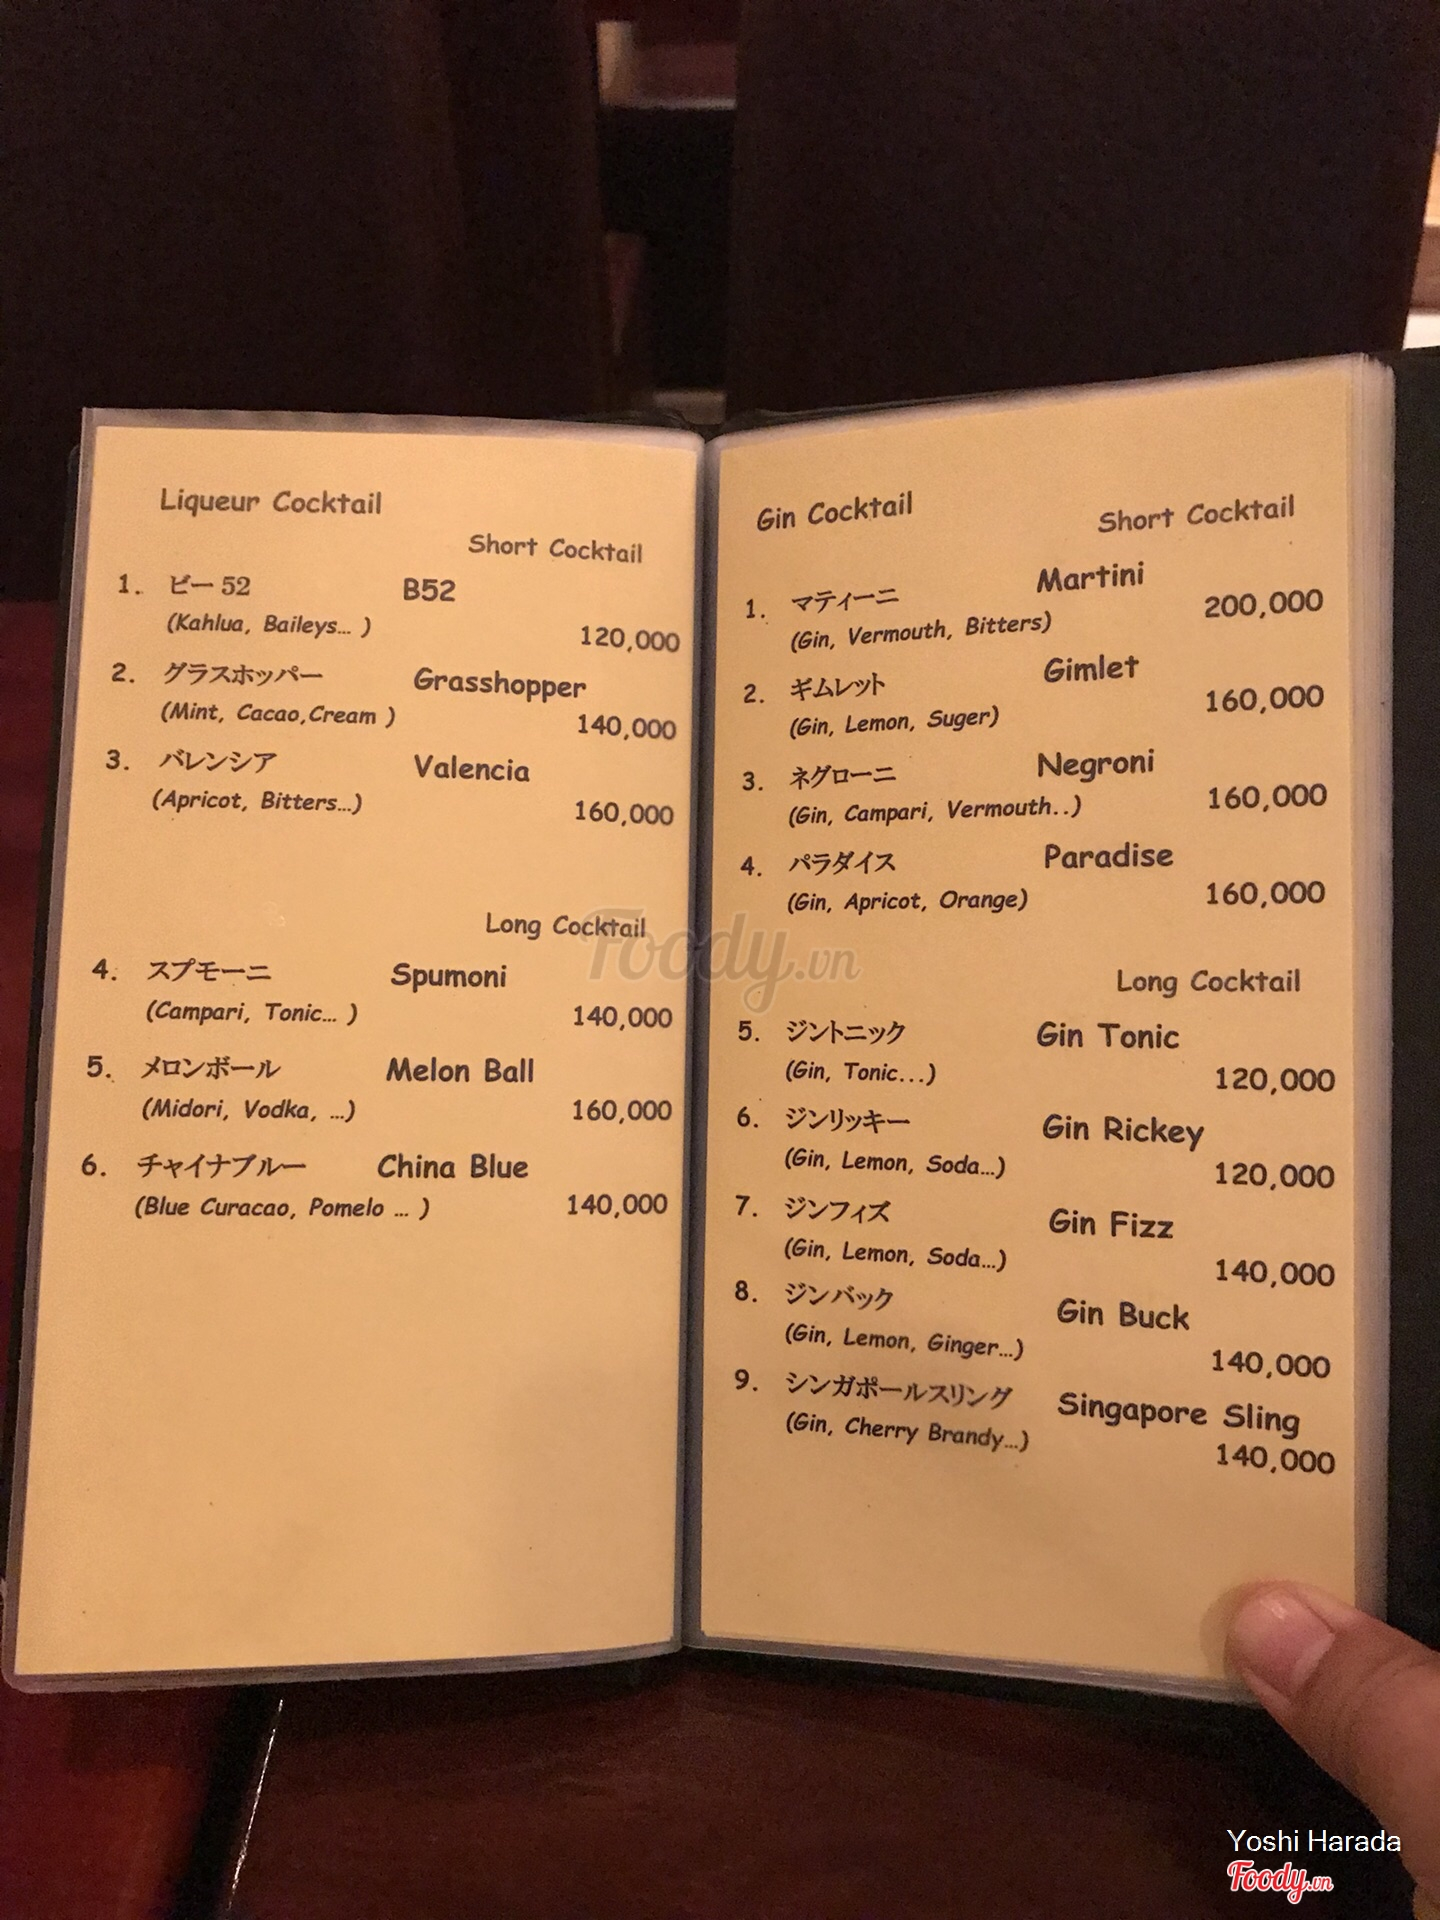 Liqueur Cocktail
Short Cocktail
1. ビー52 B52
(Kahlua, Baileys... )
120,000
2. グラスホッパー Grasshopper
(Mint, Cacao,Cream )
140,000
3. バレンシア Valencia
(Apricot, Bitters...)
160,000
Long Cocktail
4. スプモーニ Spumoni
(Campari, Tonic... )
140,000
5. メロンボール Melon Ball
(Midori, Vodka, ...)
160,000
6. チャイナブルー China Blue
(Blue Curacao, Pomelo ... )
140,000
Gin Cocktail
Short Cocktail
1. マティーニ Martini
(Gin, Vermouth, Bitters)
200,000
2. ギムレット Gimlet
(Gin, Lemon, Suger)
160,000
3. ネグローニ Negroni
(Gin, Campari, Vermouth..)
160,000
4. パラダイス Paradise
(Gin, Apricot, Orange)
160,000
Long Cocktail
5. ジントニック Gin Tonic
(Gin, Tonic...)
120,000
6. ジンリッキー Gin Rickey
(Gin, Lemon, Soda...)
120,000
7. ジンフィズ Gin Fizz
(Gin, Lemon, Soda...)
140,000
8. ジンバック Gin Buck
(Gin, Lemon, Ginger...)
140,000
9. シンガポールスリング Singapore Sling
(Gin, Cherry Brandy...)
140,000
Foody.vn
Yoshi Harada
Foody.vn